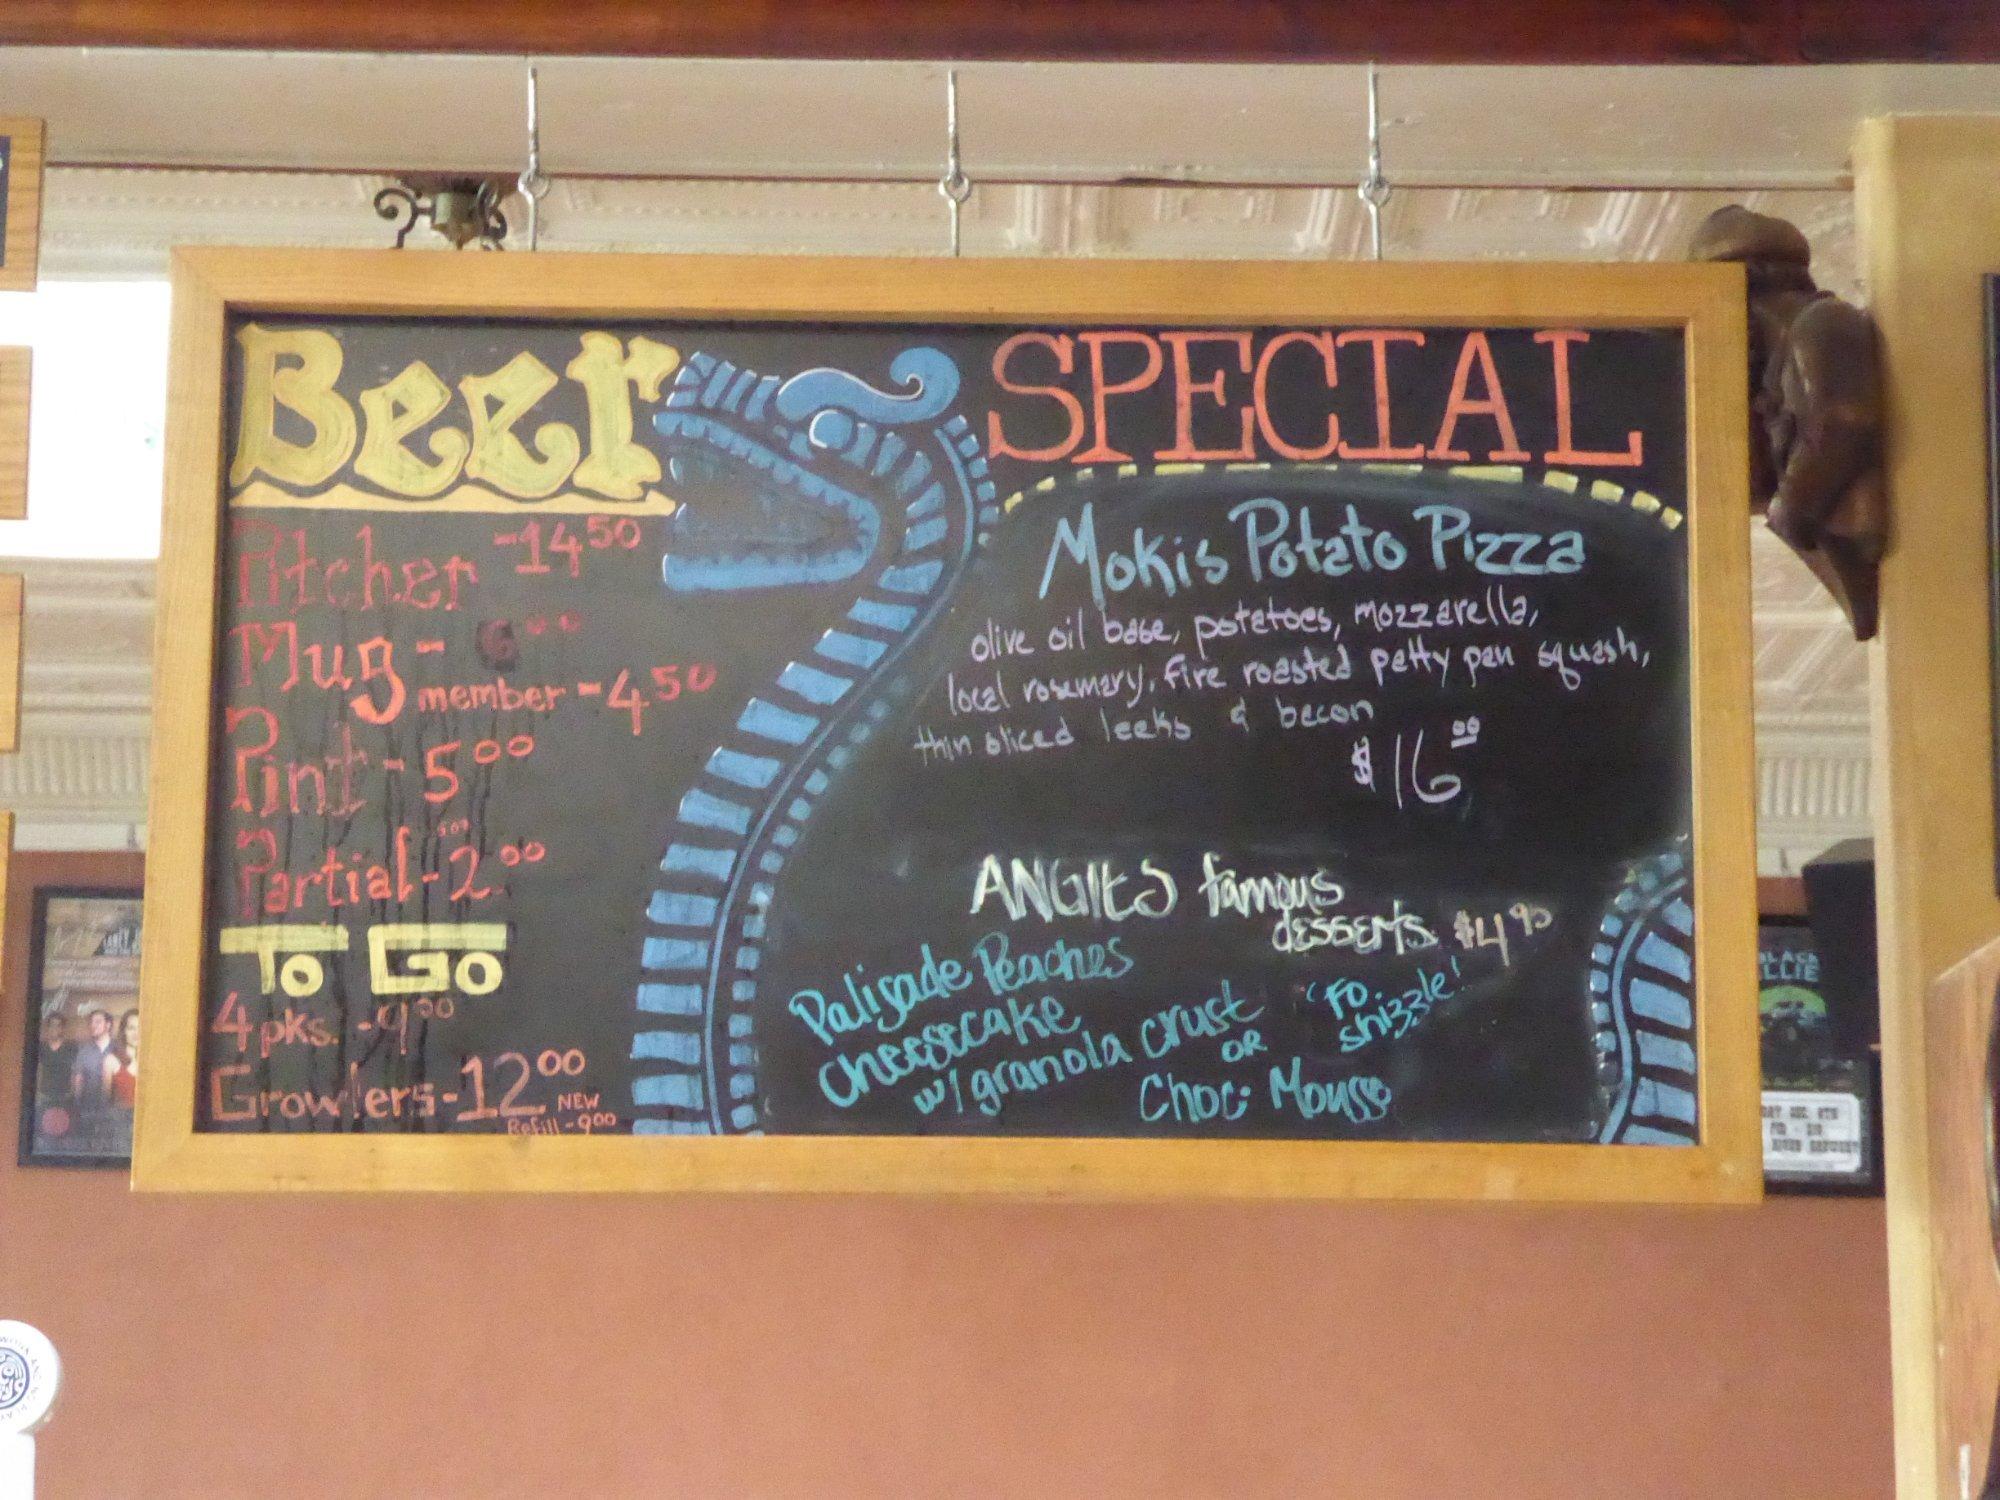 Beer
Pitcher - 14 50
Mug - 6 00
member - 4 50
Pint - 5 00
Partial - 2 00
To Go
4 pks. - 9 00
Growlers - 12 00 NEW
Refill - 9 00
SPECIAL
Mokis Potato Pizza
olive oil base, potatoes, mozzarella,
local rosemary, fire roasted patty pan squash,
thin sliced leeks & bacon
$16 00
ANGIES famous
desserts $4 95
Palisade Peaches
cheesecake
w/ granola crust
OR
Choc. Mousse
"Fo
shizzle!
BLACK
LLIE